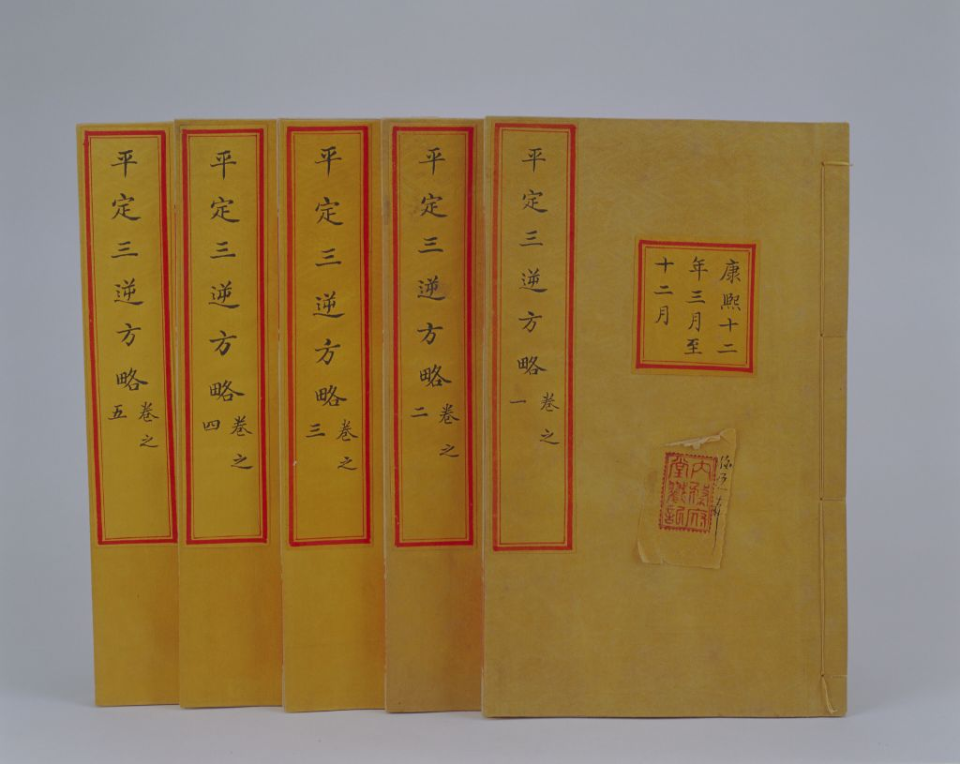 康熙十二
年三月至
十二月
平定三逆方略
卷之
一
平定三逆方略
卷之
二
平定三逆方略
卷之
三
平定三逆方略
卷之
四
平定三逆方略
卷之
五